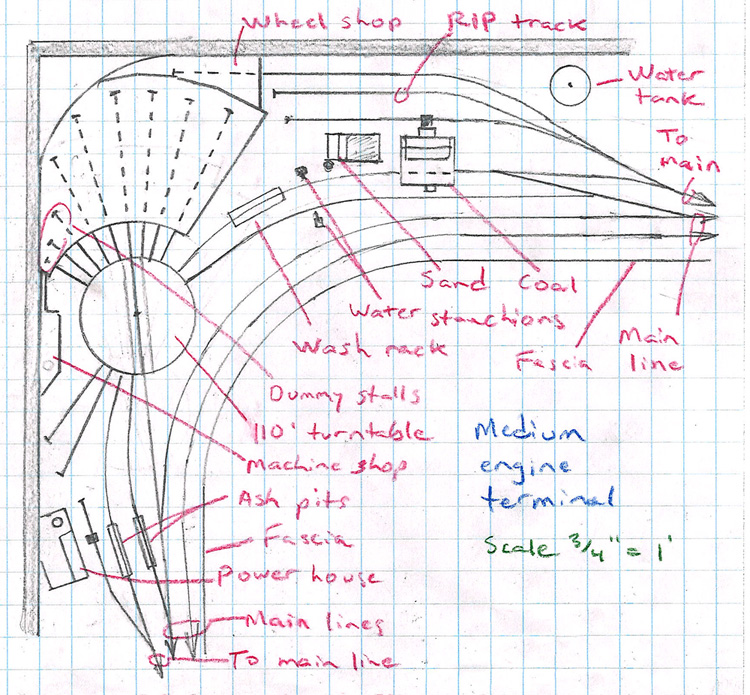 Wheel shop
RIP track
Water
tank
To
main
Sand
Coal
Water stanchions
Wash rack
Fascia
Main
line
Dummy stalls
110' turntable
Machine shop
Ash pits
Fascia
Power house
Main lines
To main line
Medium
engine
terminal
Scale 3/4" = 1'